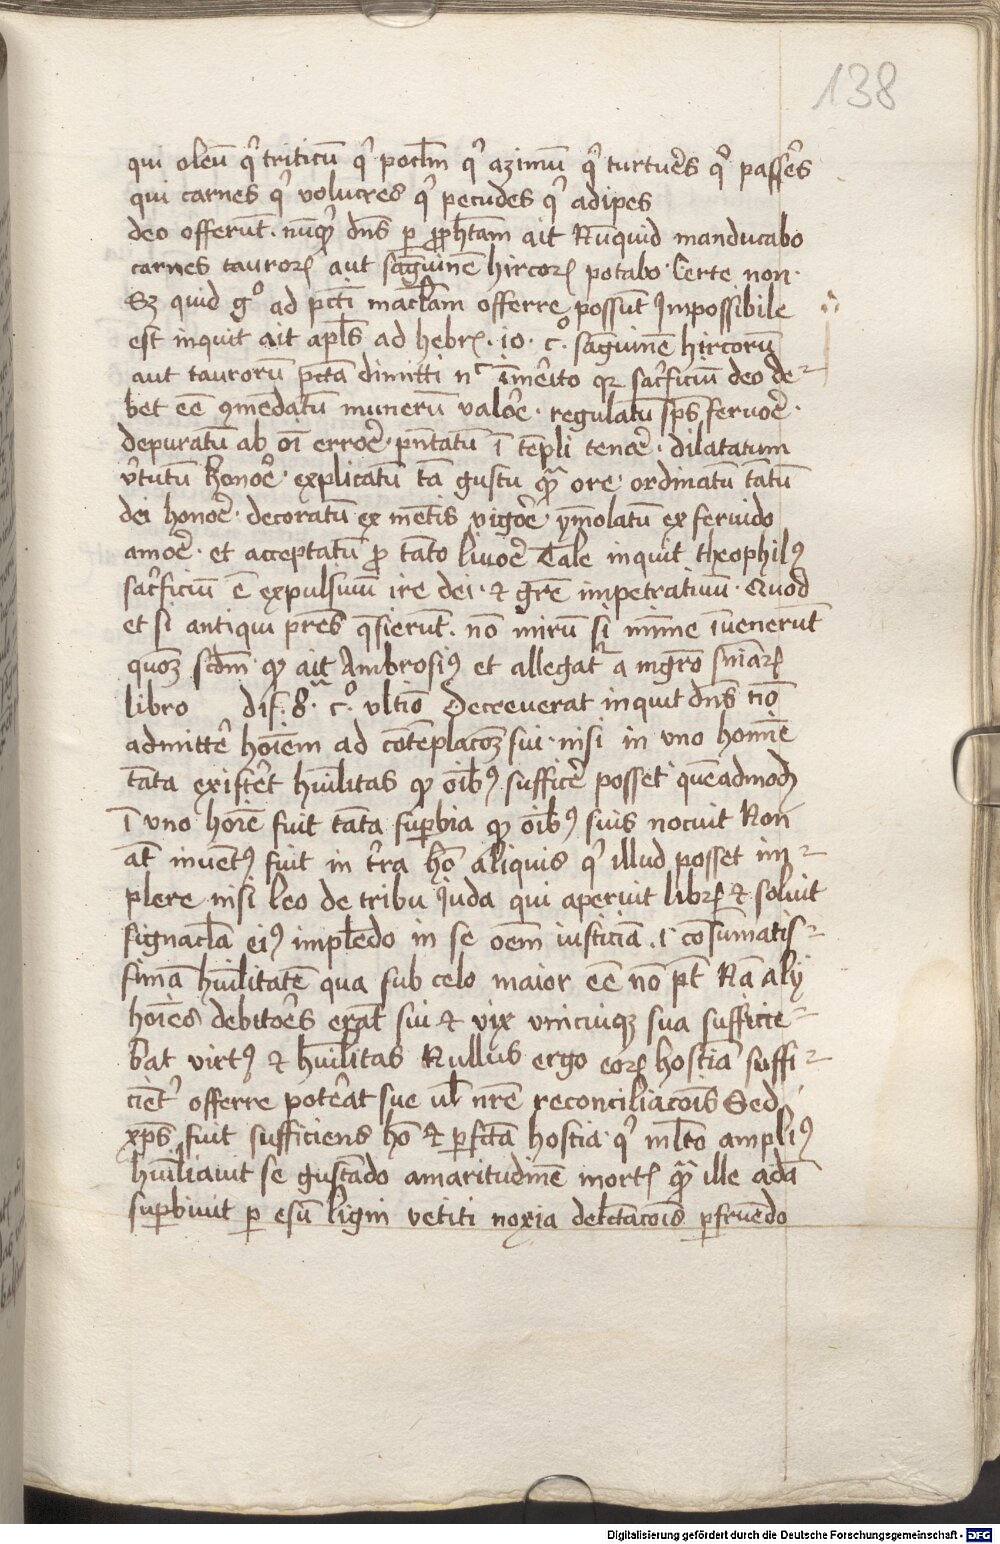 138
qui oleū qͥ triticū qͥ pocl̄m qͥ azimū qͥ turtur̄es qͦ passer̄s
qui carnes qͥ volucres qͥ pecudes qͥ adipes
deo offerūt. nūqͥ dn̄s ꝑ ꝓph̄tam ait Nūquid manducabo
carnes tauroꝝ aut sāguinē hircoꝝ potabo. Certe non.
Sꝫ quid gͦ ad pctī macl̄am offerre possūt Impossibile
est inquit ait apl̄s ad hebꝝ. 10. cͦ. sāguinē hircorū
aut taurorū pctā dimitti nᶜ īmēito qꝛ sacͥficiū deo de-
bet eē ꝯmēdatū munerū valor̄e. regulatū sps̄ feruor̄e.
depuratū ab oī error̄e. pn̄tatū ī tēpli tenor̄e. dilatatum
v̄tutū honor̄e. explicatū tā gustu qᷓ ore. ordinatū tātū
dei honor̄e. decoratū ex mētis vigor̄e. ymolatū ex feruido
amor̄e. et acceptatū ꝓ tāto liuor̄e Tale inquit theophilꝰ
sacͥficiū ē expulsiuū ire dei. et gr̄e impetratiuū. Quod
et si antiqui pr̄es q̄sierūt. nō mirū si mīme īuenerūt
quoꝫ scd̄m qꝙ ait Ambrosiꝰ et allegatᷣ a mgr̄o sn̄iaꝝ
libro dis. 8.ᵃ cͦ. vltīo Decreuerat inquit dn̄s nō
admitter̄ hoīem ad cōtēplacōꝫ sui. nisi in vno homīe
tāta existēt hūilitas qꝙ oībꝰ sufficēr posset quēadmodꝫ
ī vno hoīe fuit tāta suꝑbia qꝙ oībꝰ suis nocuit Non
āt inuētꝰ fuit in t̄ra hō aliquis qͥ illud posset im-
plere nisi leo de tribu iuda qui aperuit libꝝ et soluit
signacl̄a eiꝰ implēdo in se oēm iusticiā. ī cōsumatis-
simā hūilitatē qua sub celo maior eē nō pt̄ Nā alij
hoīes debitor̄es erāt sui et vix vnicuiqꝫ sua sufficie-
bat virtꝰ et hūilitas Nullus ergo eoꝝ hostiā suffi-
ciētͥ offerre poterāt sue ul̄ nr̄e reconciliacōis Sed
xp̄s fuit sufficiens hō et ꝑfctā hostia. qͥ ml̄to ampliꝰ
hūiliauit se gustādo amaritudinē mortꝭ qᷓ ille adā
suꝑbiuit ꝑ esū ligni vetiti noxia delctacōis ꝑfruēdo
Digitalisierung gefördert durch die Deutsche Forschungsgemeinschaft - DFG